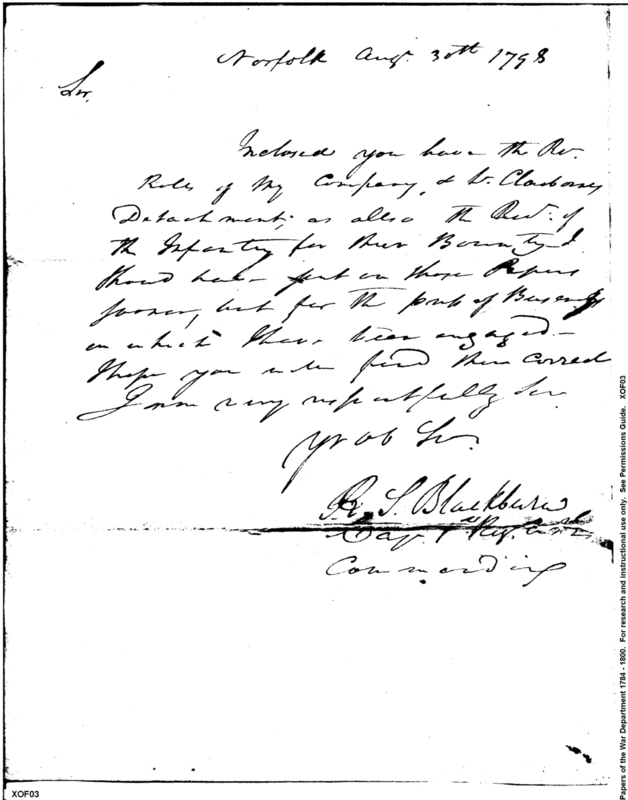 Norfolk Augt. 30th 1798
Sir,
Inclosed you have the Re.
Roles of My Company, & Lt. Claibornes
Detachment; as allso the Rect. of
the Infantry for their Bounty I
Should have sent on those Papers
sooner, but for the press of Buseness
on which I have been engaged—
I hope you will find them correct
I am very respectfully Sir
Yr Ob Sr.
R. S. Blackburn
Capt. 1st Regt.
Commanding
XOF03
Papers of the War Department 1784 - 1800. For research and instructional use only. See Permissions Guide. XOF03